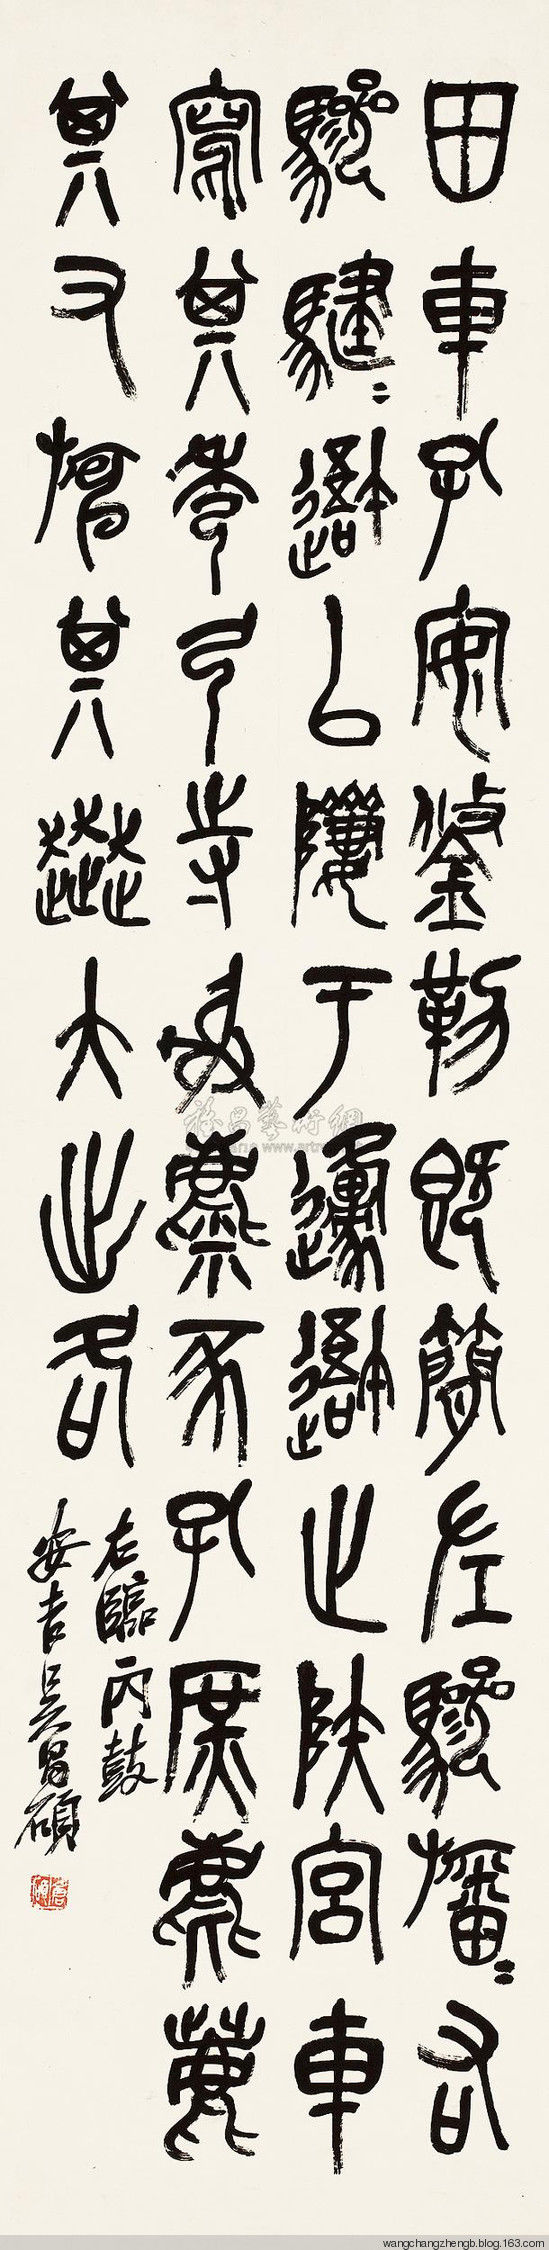 田車孔安鋚勒既簡左驂旛=右
驂騝=吾以隮于邍吾止陝宮車
寫其秀弓寺射麋豕孔庶麀鹿
其又旃其奔大出各
右臨丙鼓
安吉吳昌碩
wangchangzhengb.blog.163.com